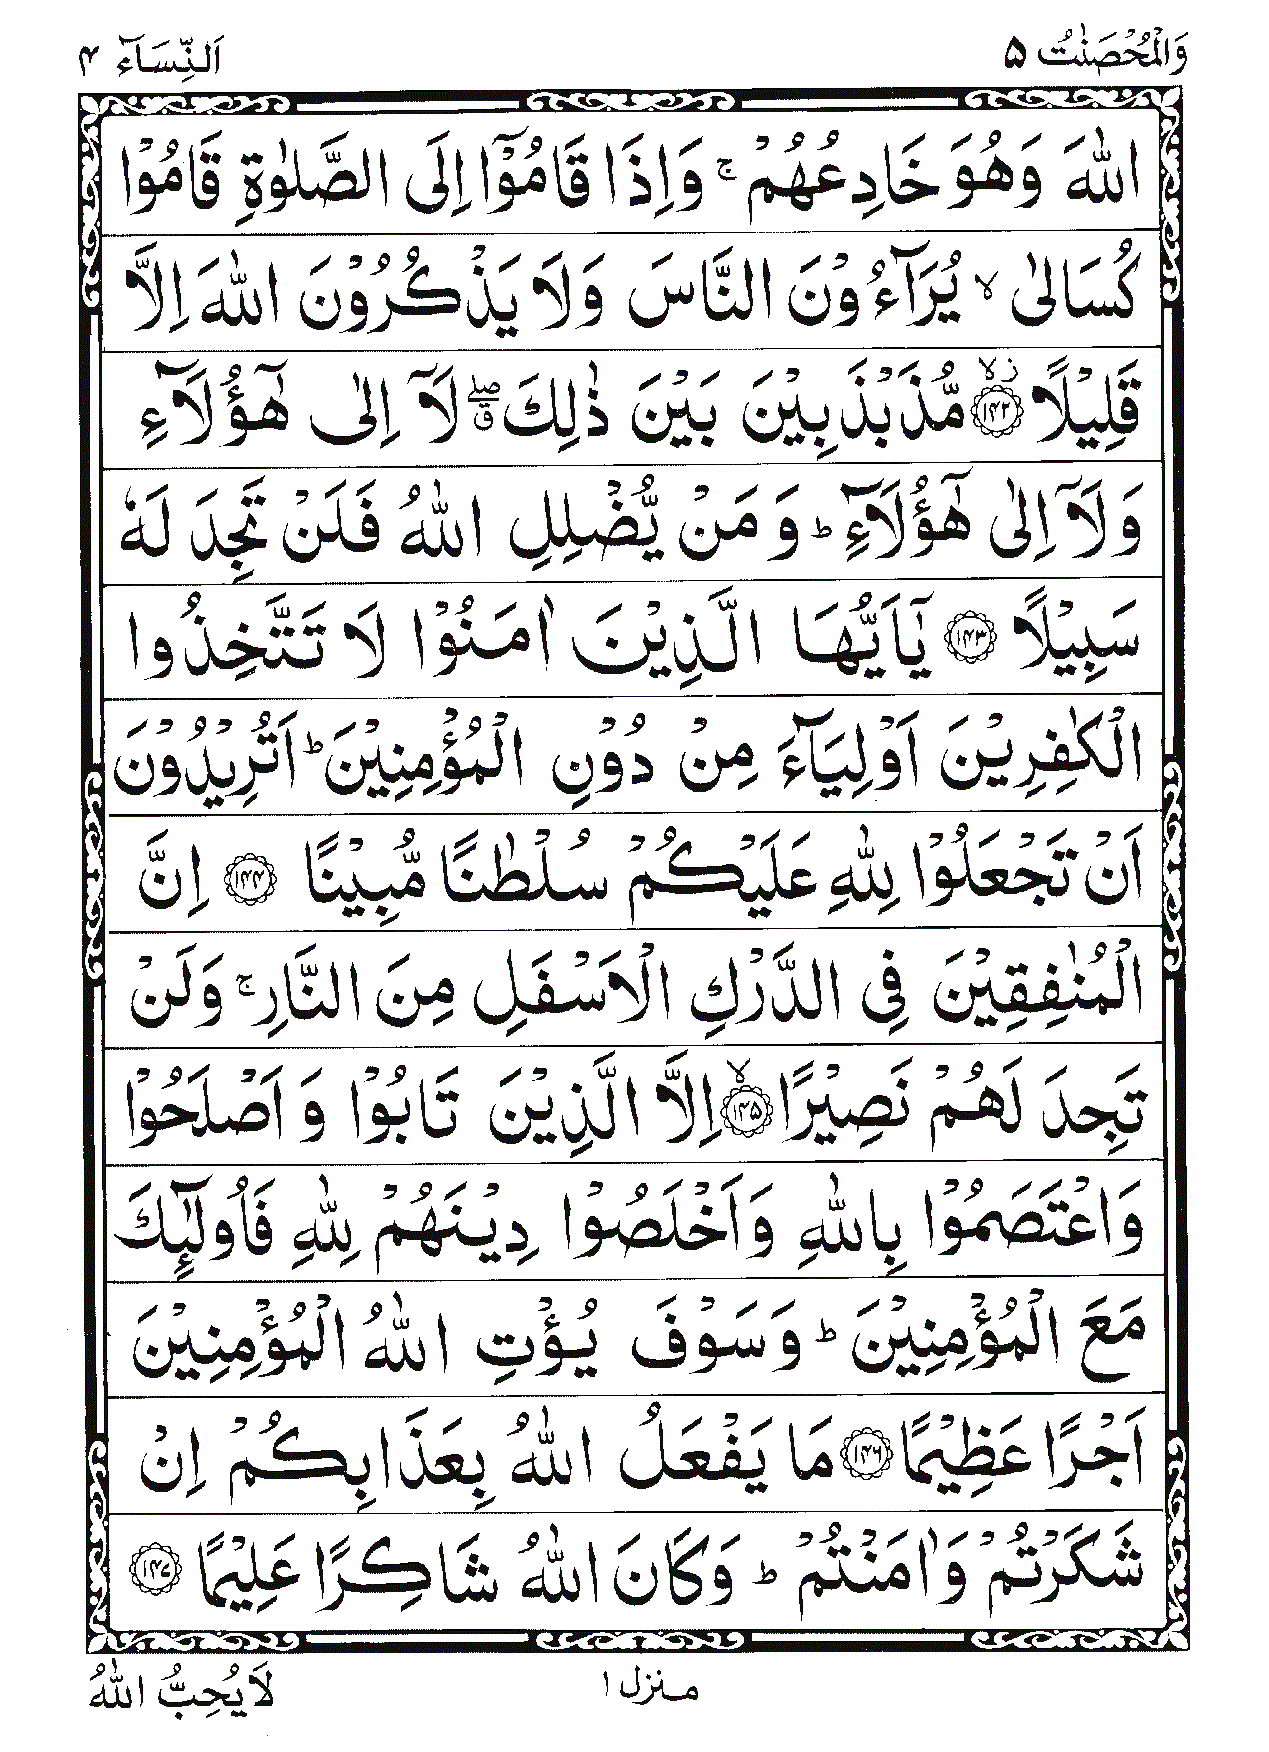 وَالْمُحْصَنٰتُ ۵ اَلنِّسَآء ۴
اللّٰهَ وَهُوَ خَادِعُهُمْ ۚ وَاِذَا قَامُوْٓا اِلَى الصَّلٰوةِ قَامُوْا
كُسَالٰى ۙ يُرَآءُوْنَ النَّاسَ وَلَا يَذْكُرُوْنَ اللّٰهَ اِلَّا
قَلِيْلًا ۱۴۲ ۙز مُّذَبْذَبِيْنَ بَيْنَ ذٰلِكَ ۖق لَآ اِلٰى هٰٓؤُلَآءِ
وَلَآ اِلٰى هٰٓؤُلَآءِ ؕ وَ مَنْ يُّضْلِلِ اللّٰهُ فَلَنْ تَجِدَ لَهٗ
سَبِيْلًا ۱۴۳ يٰٓاَيُّهَا الَّذِيْنَ اٰمَنُوْا لَا تَتَّخِذُوا
الْكٰفِرِيْنَ اَوْلِيَآءَ مِنْ دُوْنِ الْمُؤْمِنِيْنَ ؕ اَتُرِيْدُوْنَ
اَنْ تَجْعَلُوْا لِلّٰهِ عَلَيْكُمْ سُلْطٰنًا مُّبِيْنًا ۱۴۴ اِنَّ
الْمُنٰفِقِيْنَ فِى الدَّرْكِ الْاَسْفَلِ مِنَ النَّارِ ۚ وَلَنْ
تَجِدَ لَهُمْ نَصِيْرًا ۱۴۵ ۙ اِلَّا الَّذِيْنَ تَابُوْا وَ اَصْلَحُوْا
وَاعْتَصَمُوْا بِاللّٰهِ وَاَخْلَصُوْا دِيْنَهُمْ لِلّٰهِ فَاُولٰٓئِكَ
مَعَ الْمُؤْمِنِيْنَ ؕ وَسَوْفَ يُؤْتِ اللّٰهُ الْمُؤْمِنِيْنَ
اَجْرًا عَظِيْمًا ۱۴۶ مَا يَفْعَلُ اللّٰهُ بِعَذَابِكُمْ اِنْ
شَكَرْتُمْ وَاٰمَنْتُمْ ؕ وَكَانَ اللّٰهُ شَاكِرًا عَلِيْمًا ۱۴۷
منزل ۱ لَا يُحِبُّ اللّٰهُ